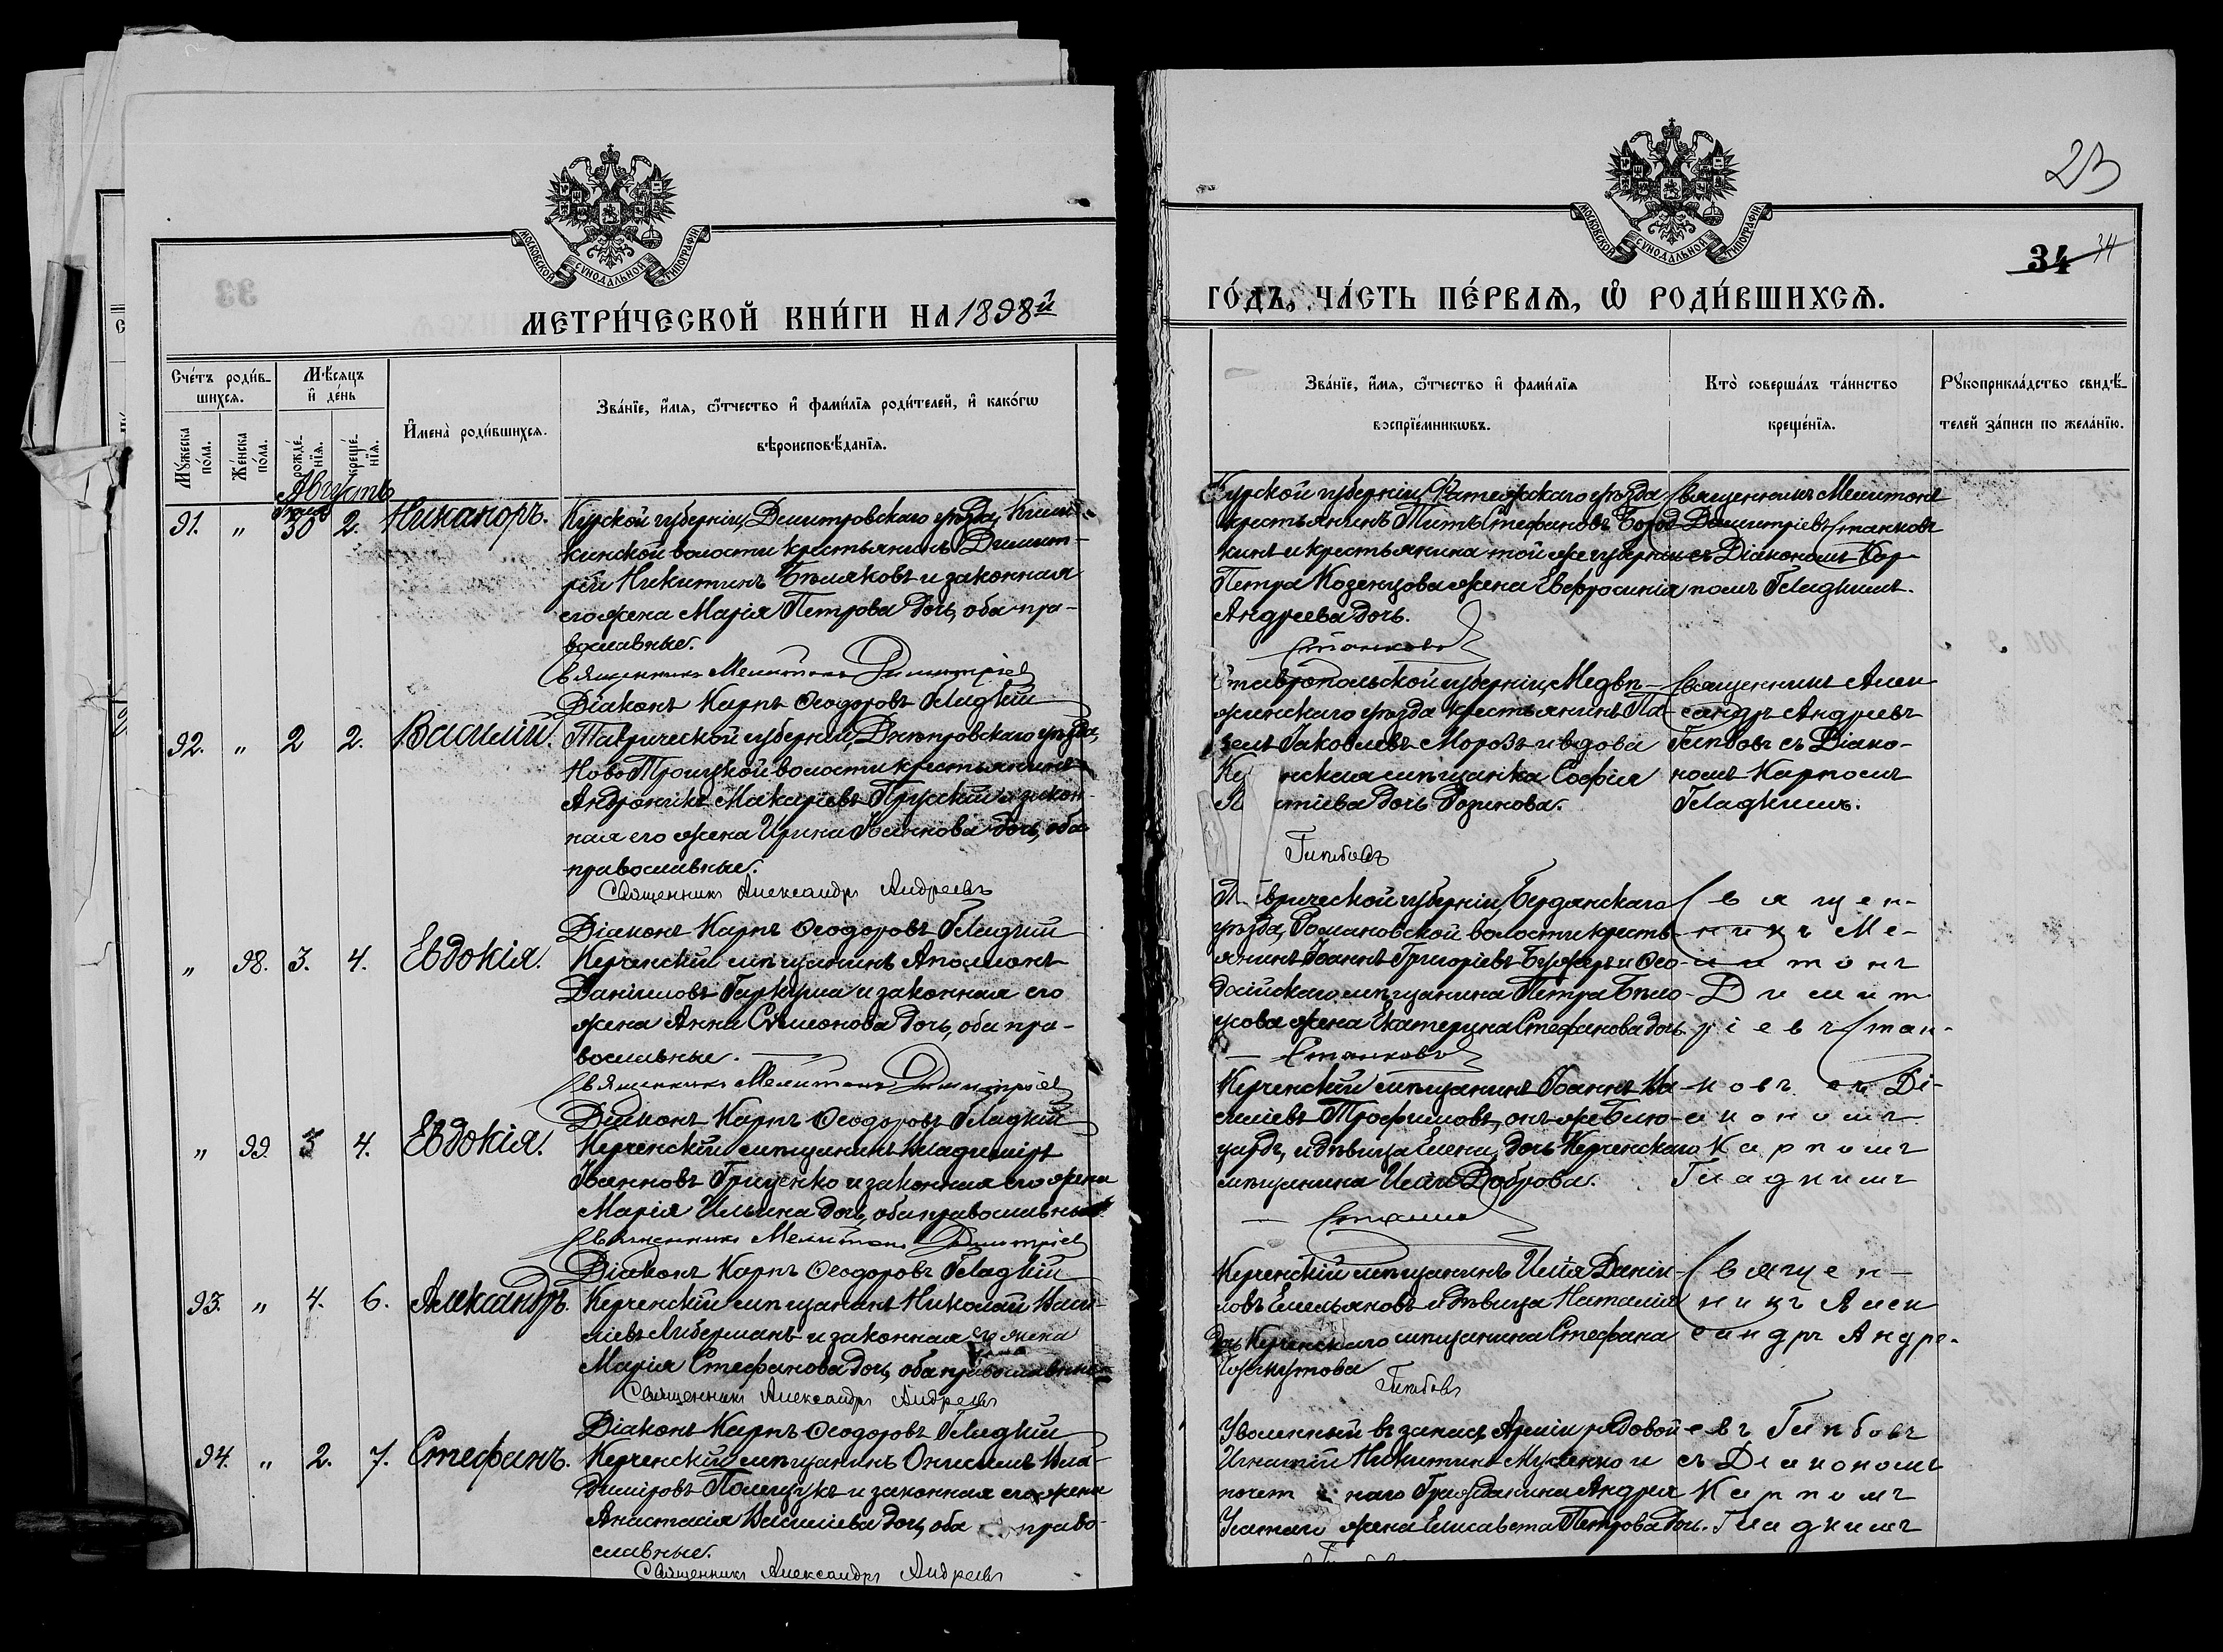 МОСКОВСКОЙ СѴНОДАЛЬНОЙ ТИПОГРАФІИ
МЕТРИ́ЧЕСКОЙ КНИ́ГИ НА 1898й
Сче́тъ роди́в-
шихсѧ.
Мѣ́сѧцъ
и҆ де́нь
Мꙋ́жеска
по́ла.
Же́нска
по́ла.
рожде́-
нїѧ.
креще́-
нїѧ.
И҆мена̀ роди́вшихсѧ.
Зва́нїе, и҆́мѧ, ѻ҆́тчество и҆ фами́лїѧ роди́телей, и҆ како́гѡ
вѣроисповѣ́данїѧ.
Августъ
91. " 30 2. Никаноръ.
Курской губерніи, Димитровскаго уѣзда,
кинской волости крестьянинъ Димит-
рій Никитинъ Бѣляковъ и законная
его жена Марія Петрова дочь, оба пра-
вославные.
Священникъ Мелитонъ Димитріев
Діаконъ Карпъ Ѳеодоровъ Гладкій
92. " 2 2. Василій.
Таврической губерніи, Днѣпровскаго уѣзда,
Ново Троицкой волости крестьянинъ
Андроникъ Макаріевъ Пруский и закон-
ная его жена Ирина Іоаннова дочь, оба
православные.
Священникъ Александръ Андреевъ
Діаконъ Карпъ Ѳеодоровъ Гладкій
" 98. 3. 4. Евдокія.
Керченскій мѣщанинъ
Даніиловъ Гаркуша и законная его
жена Анна Симонова дочь, оба пра-
вославные.
Священникъ Мелитонъ Димитріев
Діаконъ Карпъ Ѳеодоровъ Гладкій
" 99. 3 4. Евдокія.
Керченскій мѣщанинъ Владиміръ
Іоанновъ Гриценко и законная его жена
Марія Ильина дочь, оба православные.
Священникъ Мелитонъ Димитріев
Діаконъ Карпъ Ѳеодоровъ Гладкій
93. " 4. 6. Александръ.
Керченскій мѣщанинъ Николай Васи-
ліевъ Либерманъ и законная его жена
Марія Стефанова дочь, оба православные
Священникъ Александръ Андреевъ
Діаконъ Карпъ Ѳеодоровъ Гладкій
94. " 2. 7. Стефанъ.
Керченскій мѣщанинъ Онисимъ Вла-
диміровъ Полищукъ и законная его жена
Анастасія Василіева дочь, оба право-
славные.
Священникъ Александръ Андреевъ
23
МОСКОВСКОЙ СѴНОДАЛЬНОЙ ТИПОГРАФІИ
34 34
ГО́ДЪ, ЧА́СТЬ ПЕ́РВАѦ, Ѽ РОДИ́ВШИХСѦ.
Зва́нїе, и҆́мѧ, ѻ҆́тчество и҆ фами́лїѧ
воспрїе́мникѡвъ.
Кто̀ соверша́лъ та́инство
креще́нїѧ.
Рꙋкоприкла́дство свидѣ́-
телей за́писи по жела́нїю.
Курской губерніи, Фатежскаго уѣзда
крестьянинъ Титъ Стефановъ Бород-
кинъ и крестьянина той же губерніи
Петра Козенцова жена Евфросинія
Андреева дочь.
Станковъ
Священникъ Мелитонъ
Димитріевъ Станковъ
съ Діакономъ Кар-
помъ Гладкимъ.
Ставропольской губерніи, Медвѣ-
женскаго уѣзда крестьянинъ Па-
велъ Іаковлевъ Морозъ и вдова
нская мѣщанка Софія
дочь Розинова.
Глѣбовъ
Священникъ Алек
сандръ Андреевъ
Глѣбовъ съ Діако-
номъ Карпомъ
Гладкимъ.
Таврической губерніи, Бердянскаго
уѣзда, Романовской волости кресть-
янинъ Іоаннъ Григоріевъ и Ѳео-
досійскаго мѣщанина Петра Бѣло-
жена Екатерина Стефанова дочь
Станковъ
Священ-
никъ Ме-
литонъ
Димит
ріевъ Стан-
Керченскій мѣщанинъ Іоаннъ Ва-
силіевъ Трофимовъ, онъ же
и дѣвица Елена, дочь Керченскаго
мѣщанина Иліи Доброва.
ковъ съ Ді-
акономъ
Карпомъ
Гладкимъ
Керченскій мѣщанинъ Илія Даніи-
ловъ Емельяновъ и дѣвица Наталія
дочь Керченскаго мѣщанина Стефана
Глѣбовъ
Священ-
никъ Алек
сандръ Андре-
Уволенный въ запасъ Арміи рядовой
Игнатій Никитинъ Мусенко и
почетнаго Гражданина Андрея
жена Елисавета Петрова дочь.
евъ Глѣбовъ
съ Діакономъ
Карпомъ
Гладкимъ